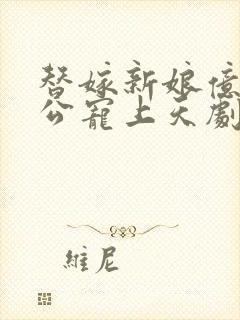 替嫁新娘億
公寵上天劇
維尼